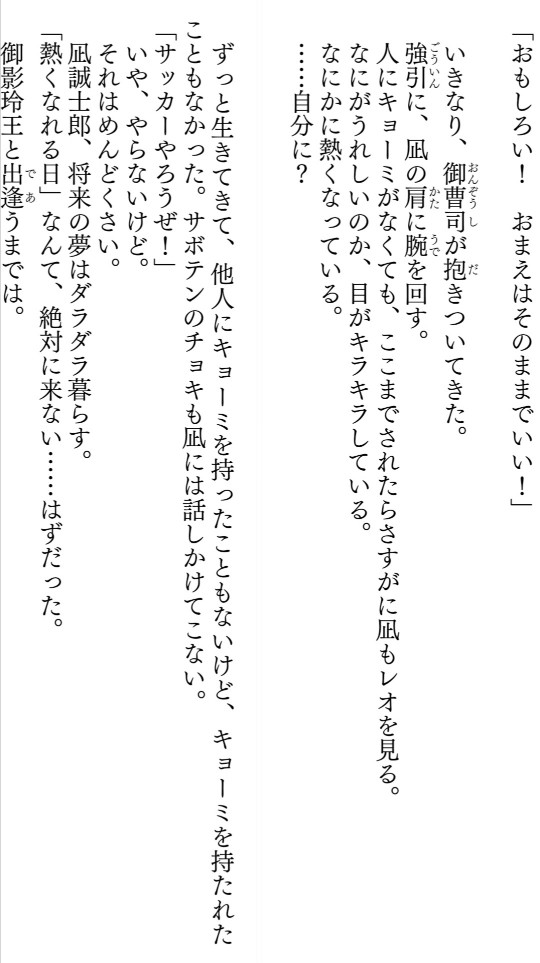 「おもしろい！　おまえはそのままでいい！」
いきなり、御曹司が抱きついてきた。
強引に、凪の肩に腕を回す。
人にキョーミがなくても、ここまでされたらさすがに凪もレオを見る。
なにがうれしいのか、目がキラキラしている。
なにかに熱くなっている。
……自分に？
ずっと生きてきて、他人にキョーミを持ったこともないけど、キョーミを持たれた
こともなかった。サボテンのチョキも凪には話しかけてこない。
「サッカーやろうぜ！」
いや、やらないけど。
それはめんどくさい。
凪誠士郎、将来の夢はダラダラ暮らす。
「熱くなれる日」なんて、絶対に来ない……はずだった。
御影玲王と出逢うまでは。